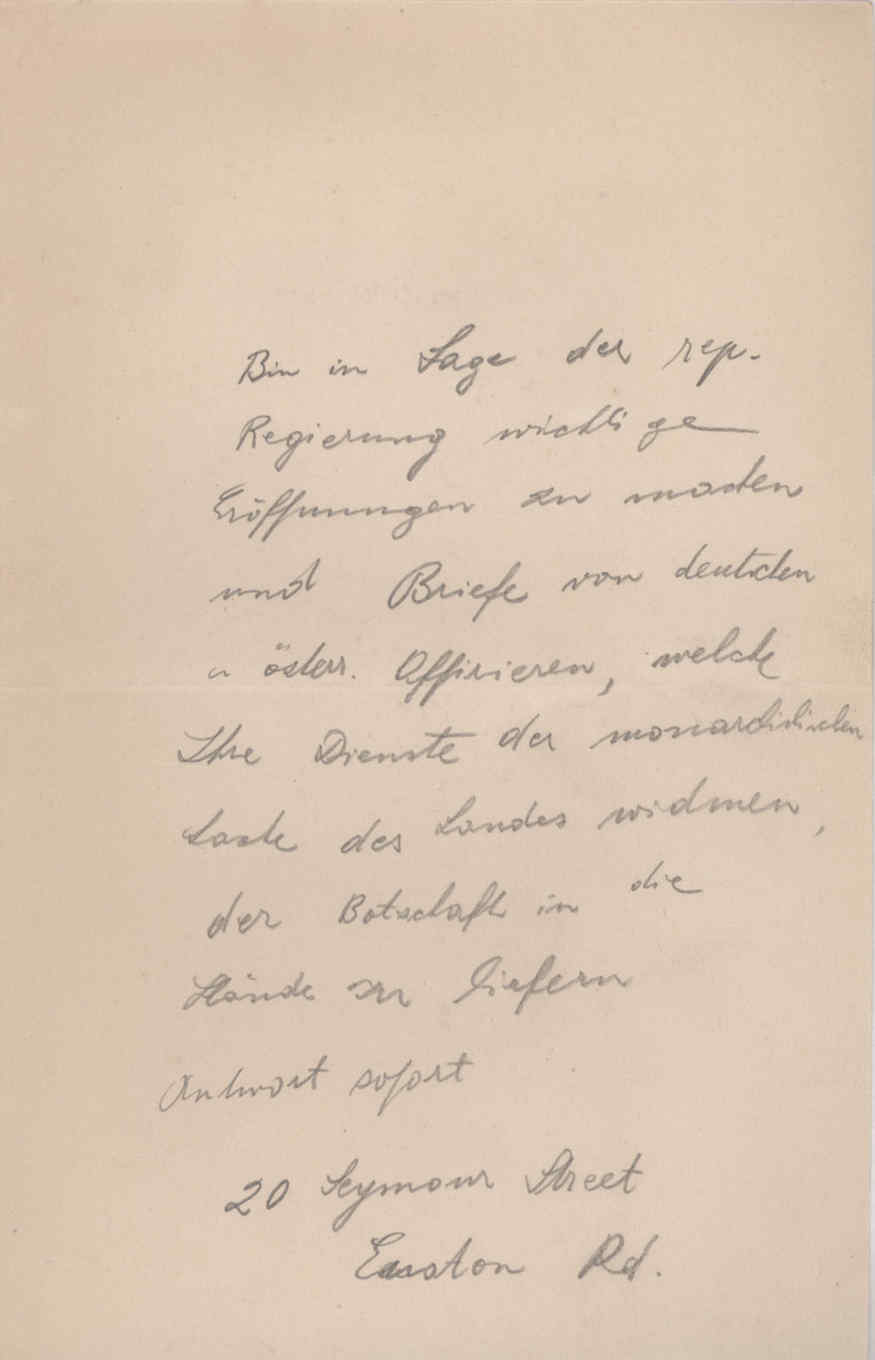 Bin in Lage der rep.
Regierung wichtige
Eröffnungen zu machen
und Briefe von deutschen
u österr. Offizieren, welche
Ihre Dienste der monarchistischen
Sache des Landes widmen,
der Botschaft in die
Hände zu liefern
Antwort sofort
20 Seymour Street
Euston Rd.